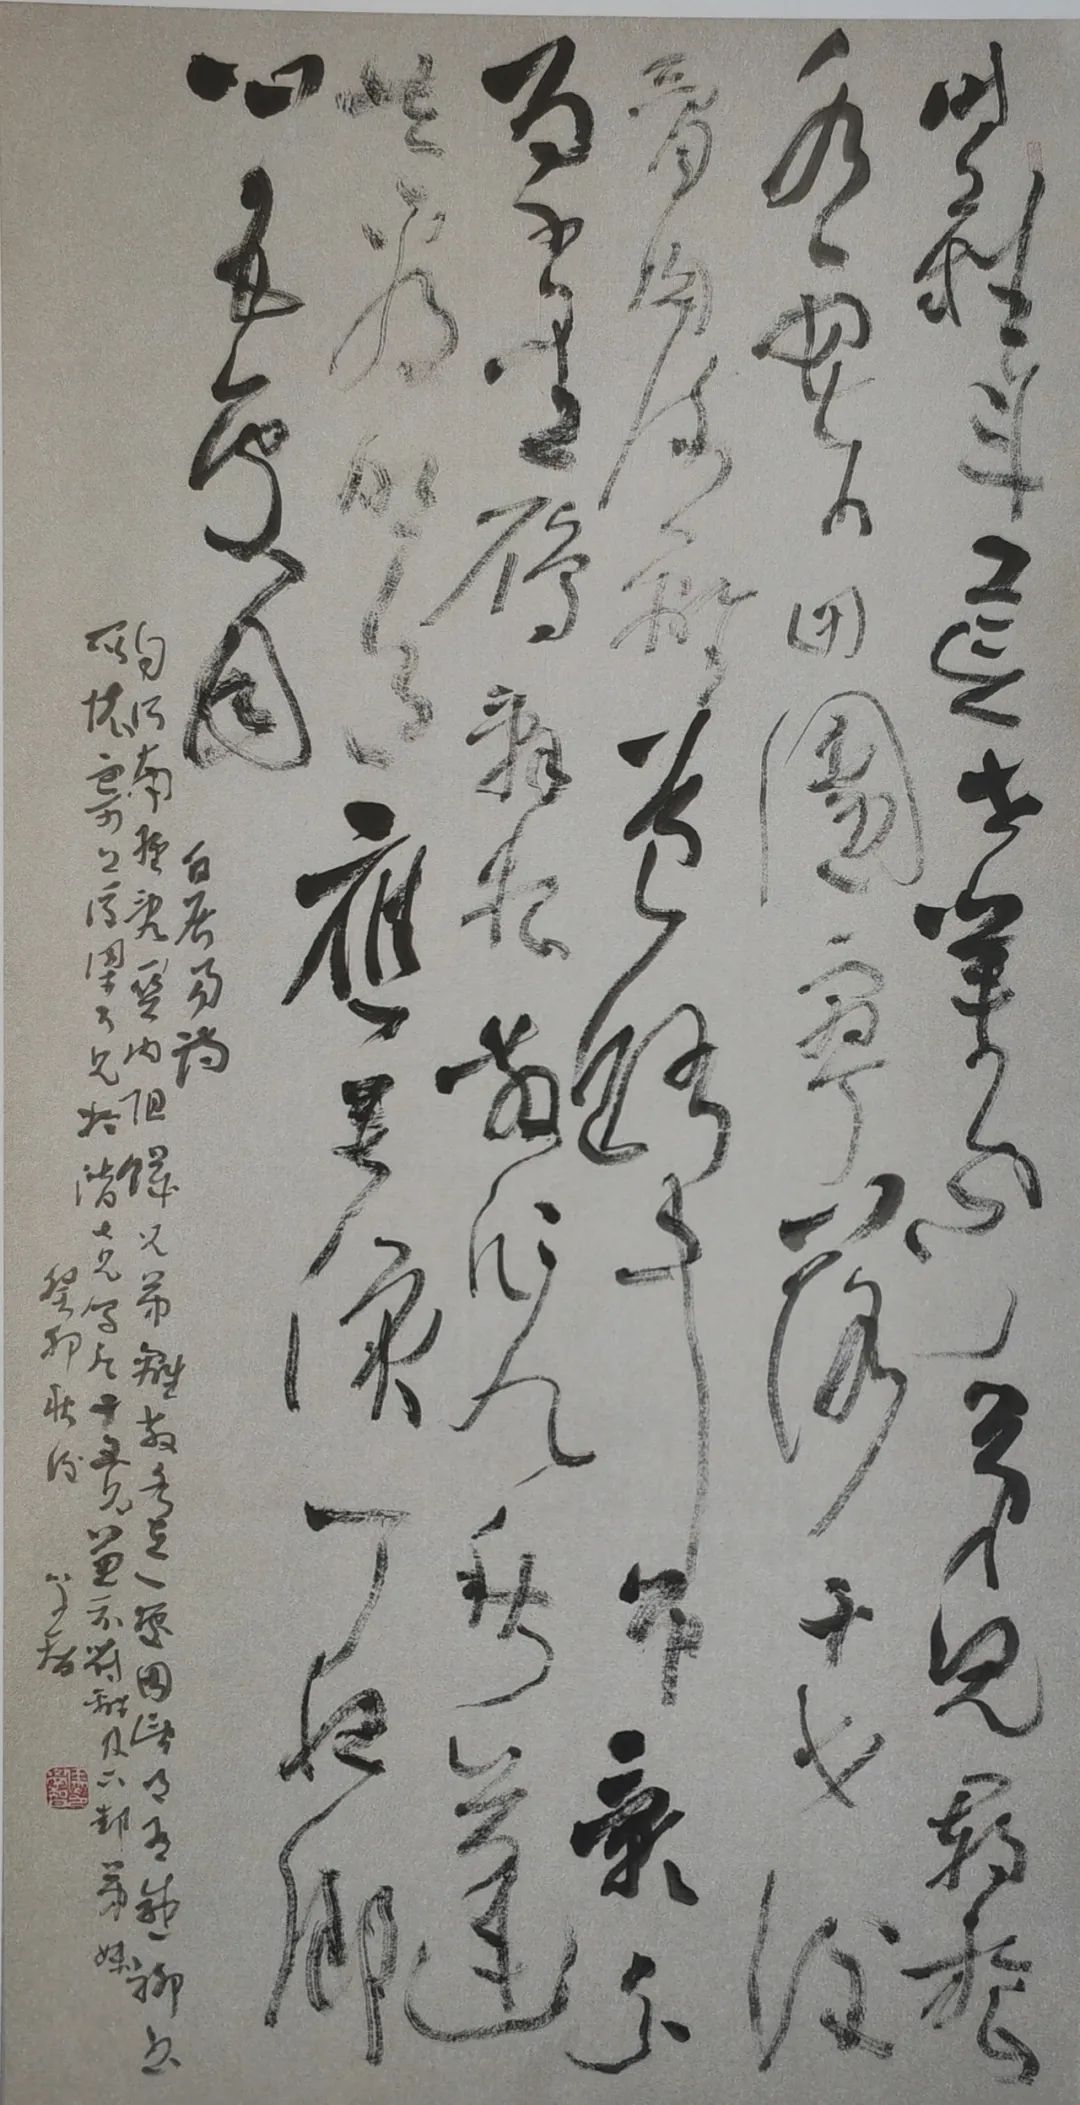 時難年荒世業空弟兄羈旅
各西東田園寥落干戈後
骨肉流離道路中弔影分
為千里雁辭根散作九秋蓬
共看明月應垂淚一夜鄉
心五處同
白居易詩
自河南經亂關內阻饑兄弟離散各在一處因望月有感聊書
所懷寄上浮梁大兄於潛七兄烏江十五兄兼示符離及下邽弟妹
癸卯秋